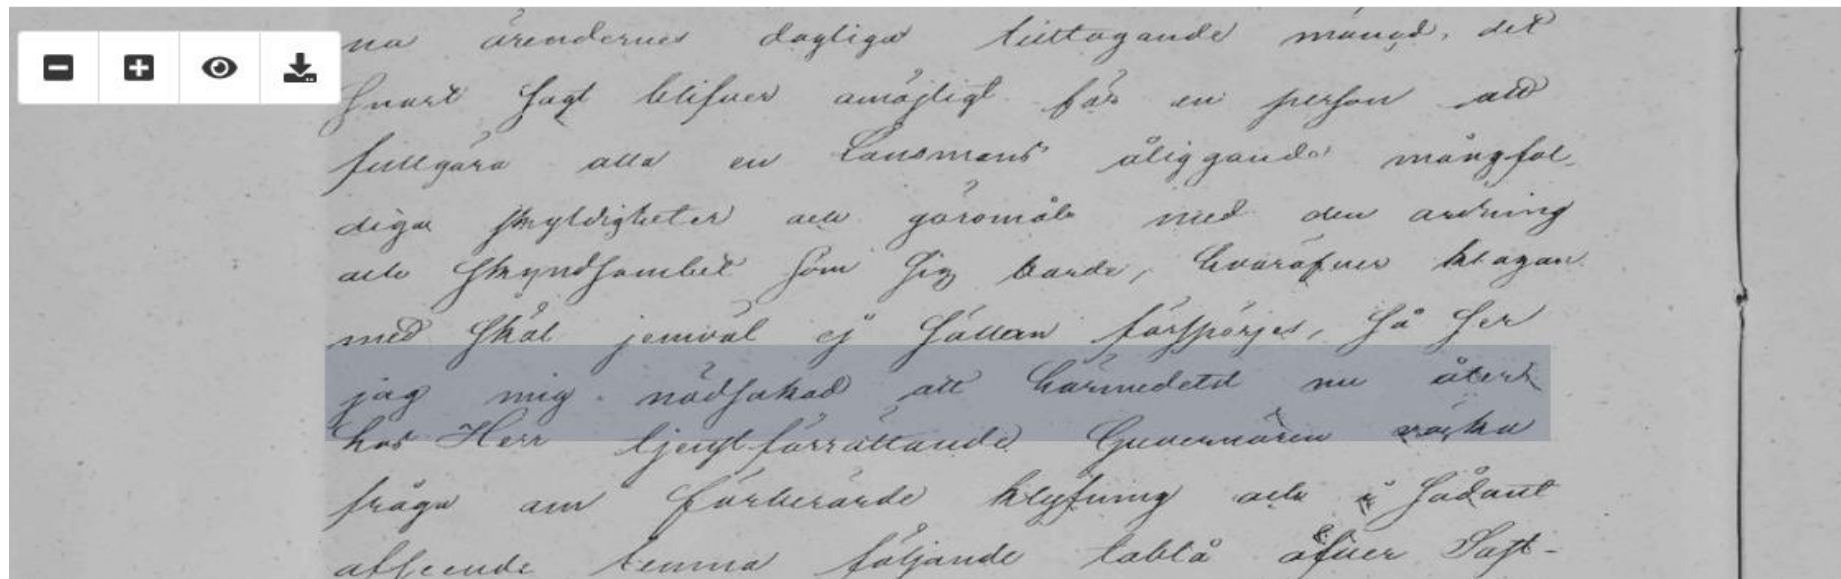 na ärendernes dagliga tilltagande mängd, det
snart sagt blifver omöjligt för en person att
fullgöra alla en Länsmans åliggande mångfal-
diga skyldigheter och göromål med den ordning
och skyndsamhet som sig borde, hvaröfver klagan
med skäl jemväl ej sällan försporjes, så ser
jag mig nödsakad att härmedelst nu återt
hos Herr tjenstförrättande Guvernören väcka
fråga om förberörde klyfning och i sådant
afseende lemna följande tablå öfver Saft-